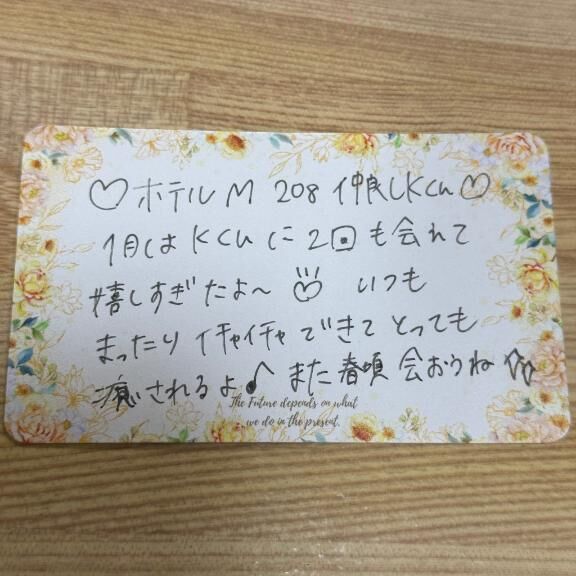 ♡ホテルM 208 仲良しKくん♡
1月はKくんに2回も会えて
嬉しすぎたよ〜 いつも
まったりイチャイチャできてとっても
癒されるよ♪ また春頃会おうね
The Future depends on what
we do in the present.